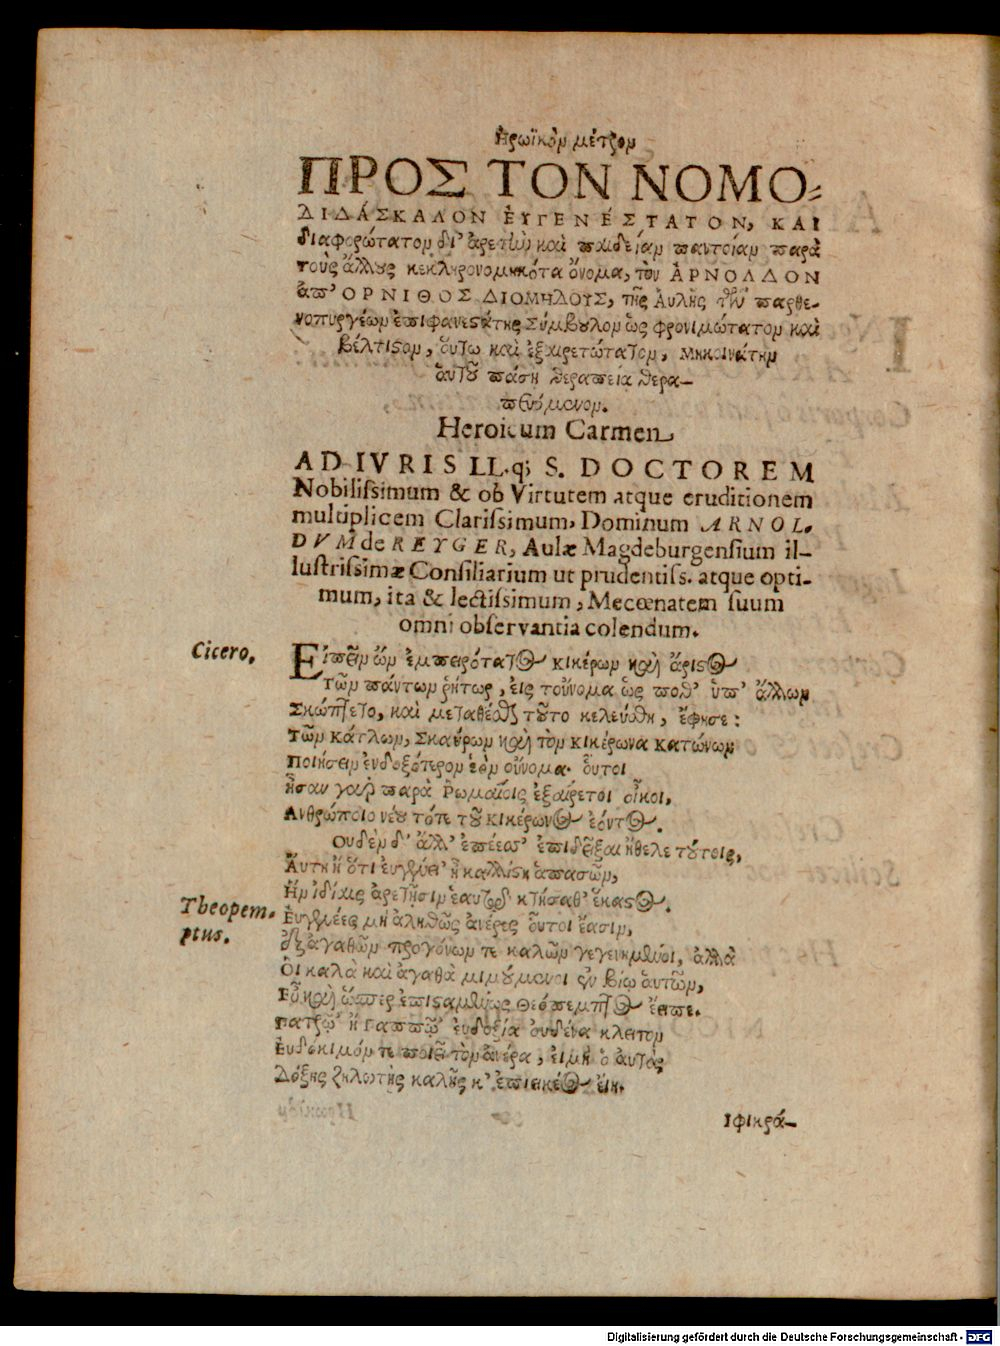 Ἡρωϊκὸν μέτρον
ΠΡΟΣ ΤΟΝ ΝΟΜΟ-
ΔΙΔΆΣΚΑΛΟΝ ἘΥΓΕΝΈΣΤΑΤΟΝ, ΚΑΙ
διαφορώτατον δι' ἀρετὴν καὶ παιδείαν παντοίαν παρὰ
τοὺς ἄλλους κεκληρονομηκότα ὄνομα, τὸν ἈΡΝΟΛΔΟΝ
ἀπ' ΟΡΝΙΘΟΣ ΔΙΟΜΗΔΟΥΣ, τῆς Ἀυλῆς τῶν παρθε-
νοπυργέων ἐπιφανεστάτης Σύμβουλον ὡς φρονιμώτατον καὶ
βέλτιστον, ὅυτω καὶ ἐξαιρετώτατον, μηκοινάτην
ἁυτοῦ πάσῃ θεραπείᾳ θερα-
πευόμενον.
Heroicum Carmen
AD IVRIS LL.q; S. DOCTOREM
Nobilissimum & ob Virtutem atque eruditionem
multiplicem Clarissimum, Dominum ARNOL-
DVM de REYGER, Aulæ Magdeburgensium il-
lustrissimæ Consiliarium ut prudentiss. atque opti-
mum, ita & lectissimum, Mecœnatem suum
omni observantia colendum.
Cicero.
Εἰπεῖν ὢν ἐμπειρότατος κικέρων καὶ ἄριστος
Τῶν πάντων ῥήτωρ, εἰς τοὔνομα ὡς ποθ' ὑπ' ἄλλων
Σκώπτετο, καὶ μεταθέσθαι τοῦτο κελεύσθη, ἔφησε:
Τῶν κάτλων, Σκαύρων καὶ τὸν κικέρωνα κατώνων
ποιήσειν ἐνδοξότερον ἑὸν οὔνομα. ὅυτοι
ἦσαν γαὶρ παρὰ Ῥωμαίοις ἐξαίρετοι οἶκοι,
Ἀνθρώποιο νέου τότε τοῦ κικέρωνος ἐόντος.
Ουδὲν δ' ἄλλ' ἐπέεσσ' ἐπιδεῖξαι ἤθελε τούτοις,
Ἄυτη ἢ ὅτι ἐυγένει' ἦ καλλίστη ἁπασῶν,
Ἣν ἰδίαις ἀρετῇσιν ἑαυτῷ κτήσαθ' ἕκαστος.
Theopem-
ptus.
Ἐυγενέες μὴ ἀληθῶς ἀνέρες οὗτοι ἔασιν,
ἐξ ἀγαθῶν προγόνων τε καλῶν γεγεννημένοι, ἀλλὰ
Ὁι καλὰ καὶ ἀγαθὰ μιμούμενοι ἐν βίῳ ἁυτῶν,
Εὖ καὶ ὥσπερ ἐπισταμένως Θεόπεμπτος ἔειπε.
πατρῴ' ἢ παππῴ' ἐυδοξία ὀυδένα κλειτὸν
Ἐυδόκιμόν τε ποιεῖ τὸν ἀνέρα, ἐι μὴ ὁ ἀυτὸς
Δόξης ζηλωτὴς καλῆς κ' ἐπιεικέος ἔιη.
Ιφικρά-
Digitalisierung gefördert durch die Deutsche Forschungsgemeinschaft - DFG